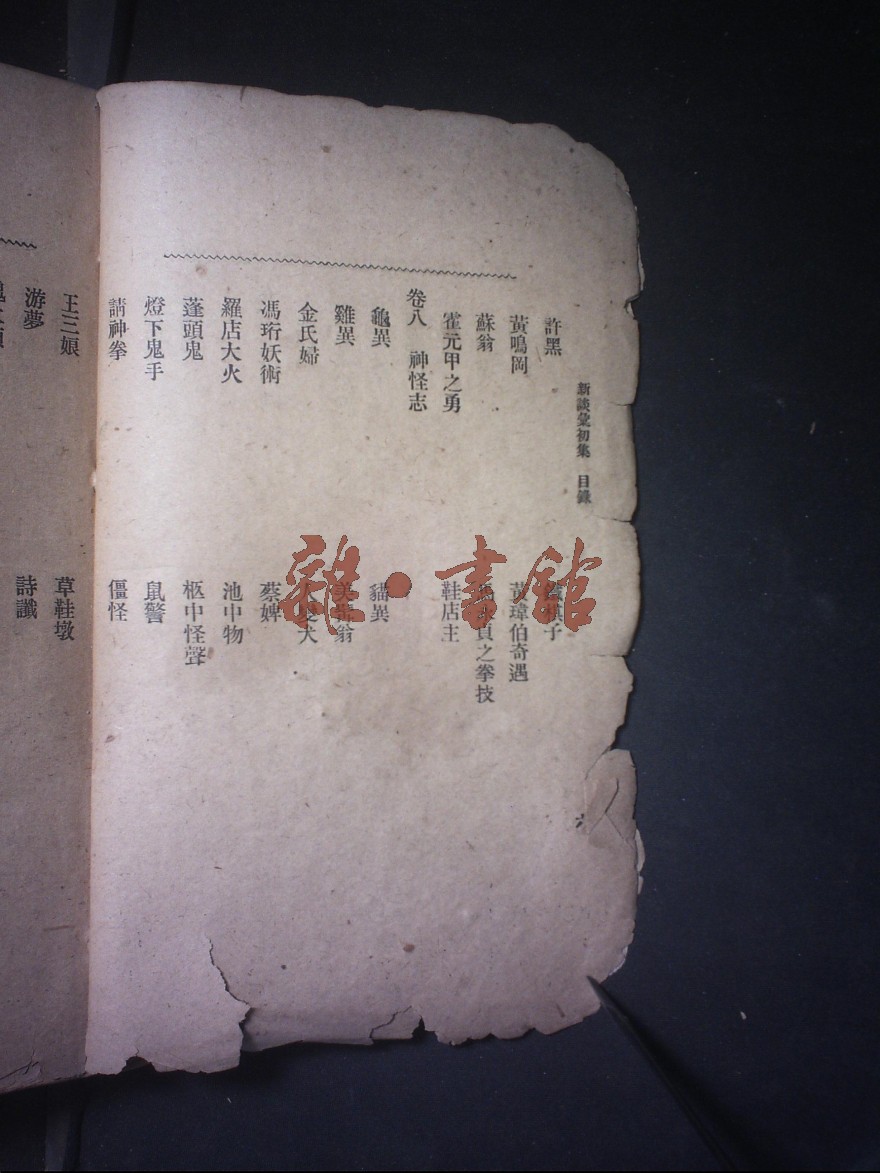 新談彙初集　目錄
許黑　棋子
黃鳴岡　黃瑋伯奇遇
蘇翁　之拳技
霍元甲之勇　鞋店主
卷八　神怪志
龜異　貓異
雞異　美髯翁
金氏婦　犬
馮珩妖術　蔡婢
羅店大火　池中物
蓬頭鬼　柩中怪聲
燈下鬼手　鼠警
請神拳　僵怪
王三娘　草鞋墩
游夢　詩讖
雜·書館